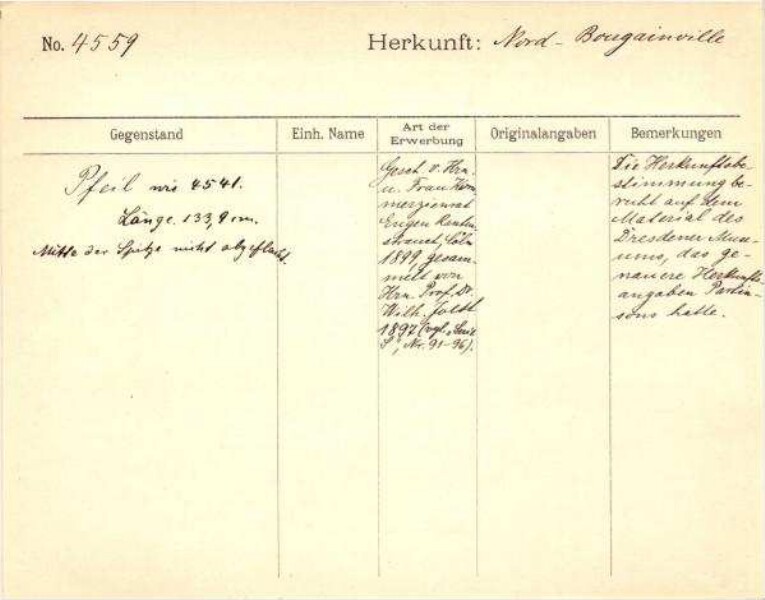 No. 4559
Herkunft: Nord-Bougainville
Gegenstand
Einh. Name
Art der
Erwerbung
Originalangaben
Bemerkungen
Pfeil wie 4541.
Länge. 133,9 cm.
Mitte der Spitze nicht abgeflacht.
Gesch. v. Hrn.
u. Frau Kom
merzienrat
Eugen Rauten
strauch, Cöln
1899, gesam-
melt von
Hrn. Prof. Dr.
Wilh. Joest
1897 (vgl. Serie
S", Nr. 91-96).
Die Herkunftsbe-
stimmung be-
ruht auf dem
Material des
Dresdener Muse-
ums, das ge-
nauere Herkunfts-
angaben Parkin-
sons hatte.